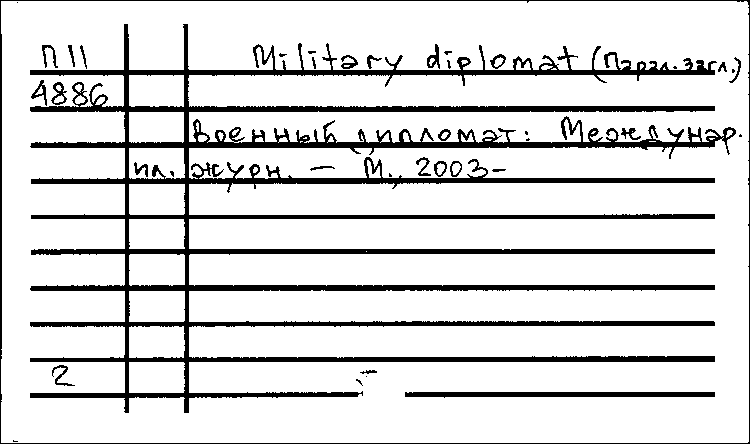 П11 Military diplomat (Парал. загл.)
4886
Военный дипломат: Междунар.
ил. журн. — М., 2003-
2